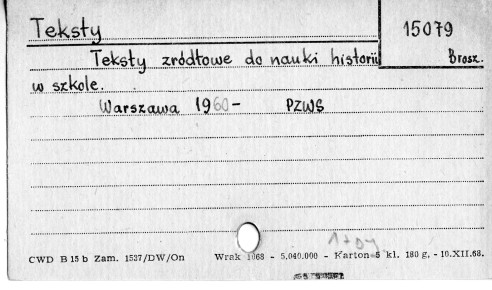 Teksty
15079
Teksty zródłowe do nauki historii
Brosz.
w szkole.
Warszawa 1960- PZWS
CWD B 15 b Zam. 1537/DW/On Wrak 1068 - 5.040.000 - Karton 5 kl. 180 g. - 10.XII.68.